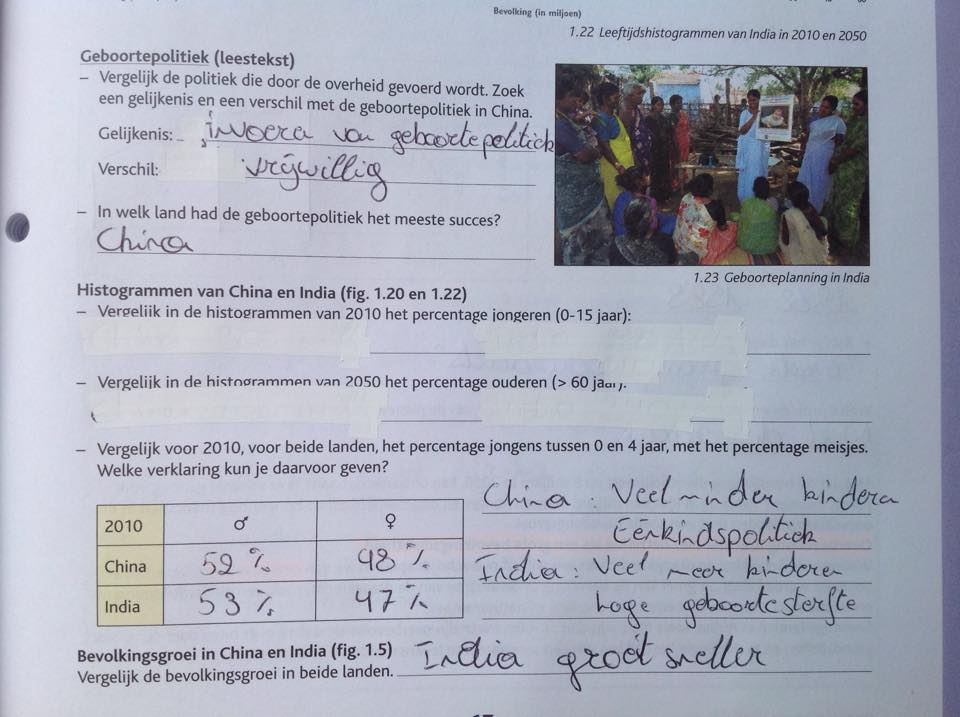 Bevolking (in miljoen)
1.22 Leeftijdshistogrammen van India in 2010 en 2050
Geboortepolitiek (leestekst)
– Vergelijk de politiek die door de overheid gevoerd wordt. Zoek
een gelijkenis en een verschil met de geboortepolitiek in China.
Gelijkenis: invoera van geboortepolitiek
Verschil: vrijwillig
– In welk land had de geboortepolitiek het meeste succes?
China
1.23 Geboorteplanning in India
Histogrammen van China en India (fig. 1.20 en 1.22)
– Vergelijk in de histogrammen van 2010 het percentage jongeren (0-15 jaar):
– Vergelijk in de histogrammen van 2050 het percentage ouderen (> 60 jaar).
– Vergelijk voor 2010, voor beide landen, het percentage jongens tussen 0 en 4 jaar, met het percentage meisjes.
Welke verklaring kun je daarvoor geven?
2010 ♂ ♀
China 52 % 48 %
India 53 % 47 %
China : Veel minder kinderen
Eénkindspolitiek
India : Veel meer kinderen
hoge geboortesterfte
Bevolkingsgroei in China en India (fig. 1.5)
Vergelijk de bevolkingsgroei in beide landen. India groeit sneller